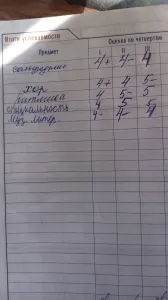 Итоги успеваемости Оценка по четвертям
Предмет I II III
Сольфеджио 4+ 4- 4
Хор 4+ 4 5-
4 5- 5
Специальность 4 5 5
Муз. литер 4- 4- 4